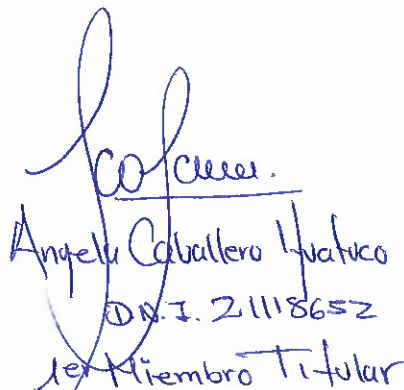 Angela Caballero Huatuco
D.N.I. 21118652
1er Miembro Titular